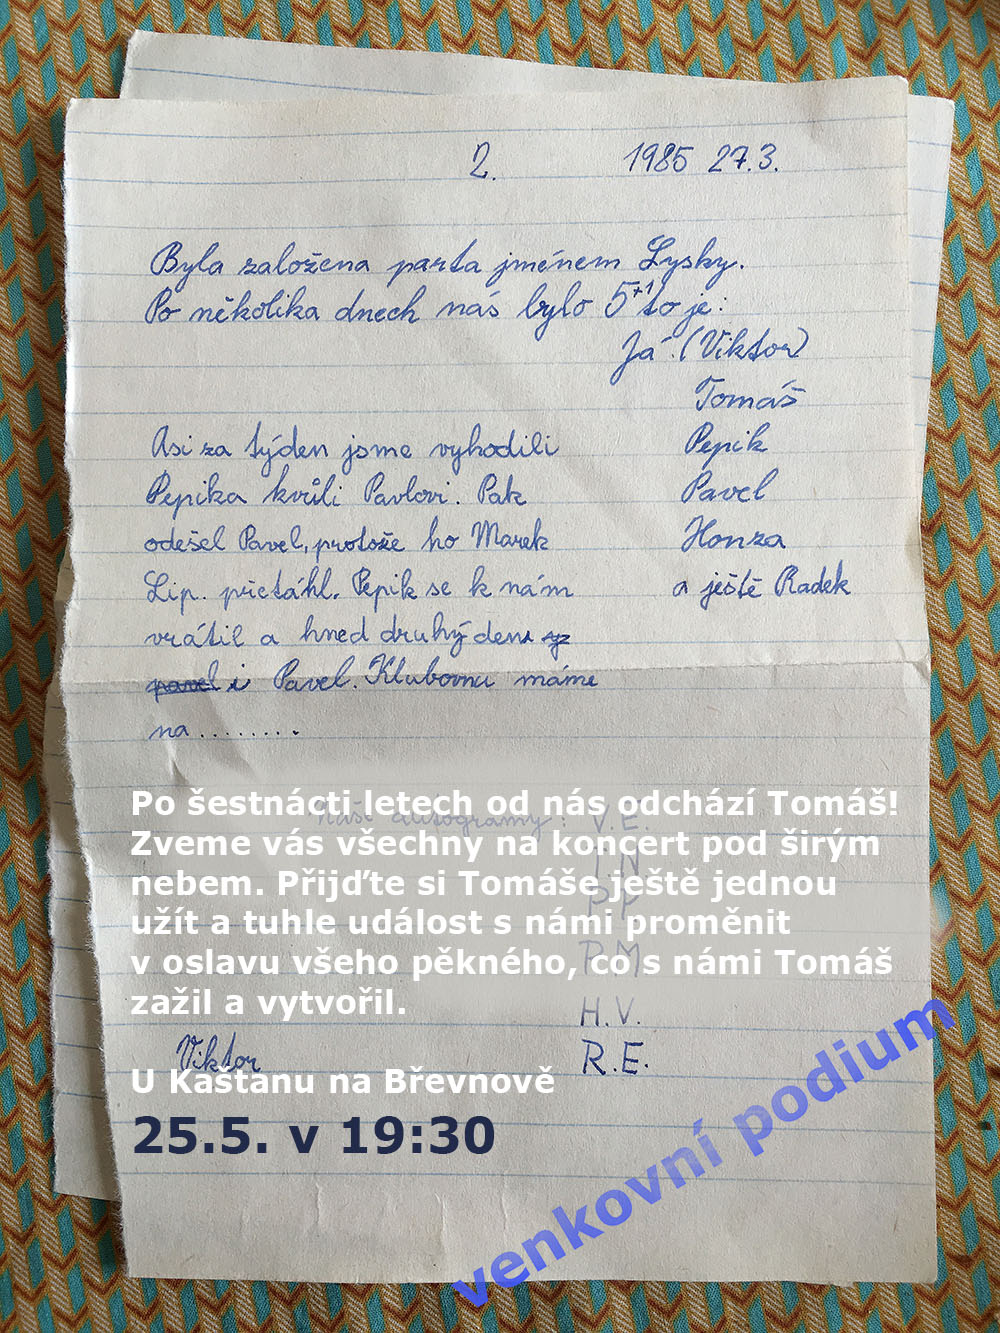 2. 1985 27.3.
Byla založena parta jménem Lysky.
Po několika dnech nás bylo 5+1 to je:
Já. (Viktor)
Tomáš
Pepik
Pavel
Honza
a ještě Radek
Asi za týden jsme vyhodili
Pepika kvůli Pavlovi. Pak
odešel Pavel, protože ho Marek
Lip. přetáhl. Pepik se k nám
vrátil a hned druhý den
pavel i Pavel. Klubovnu máme
na ........
Naše autogramy: V.E.
T.N
P.P
P.M
H.V.
R.E.
Viktor
Po šestnácti letech od nás odchází Tomáš!
Zveme vás všechny na koncert pod širým
nebem. Přijďte si Tomáše ještě jednou
užít a tuhle událost s námi proměnit
v oslavu všeho pěkného, co s námi Tomáš
zažil a vytvořil.
U Kaštanu na Břevnově
25.5. v 19:30
venkovní podium